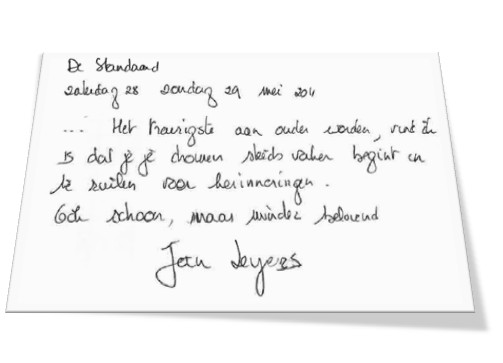 De Standaard
zaterdag 28 zondag 29 mei 2011
... Het treurigste aan ouder worden, vind ik
is dat je je dromen steeds vaker begint in
te ruilen voor herinneringen.
Ook schoon, maar minder belovend
Jean